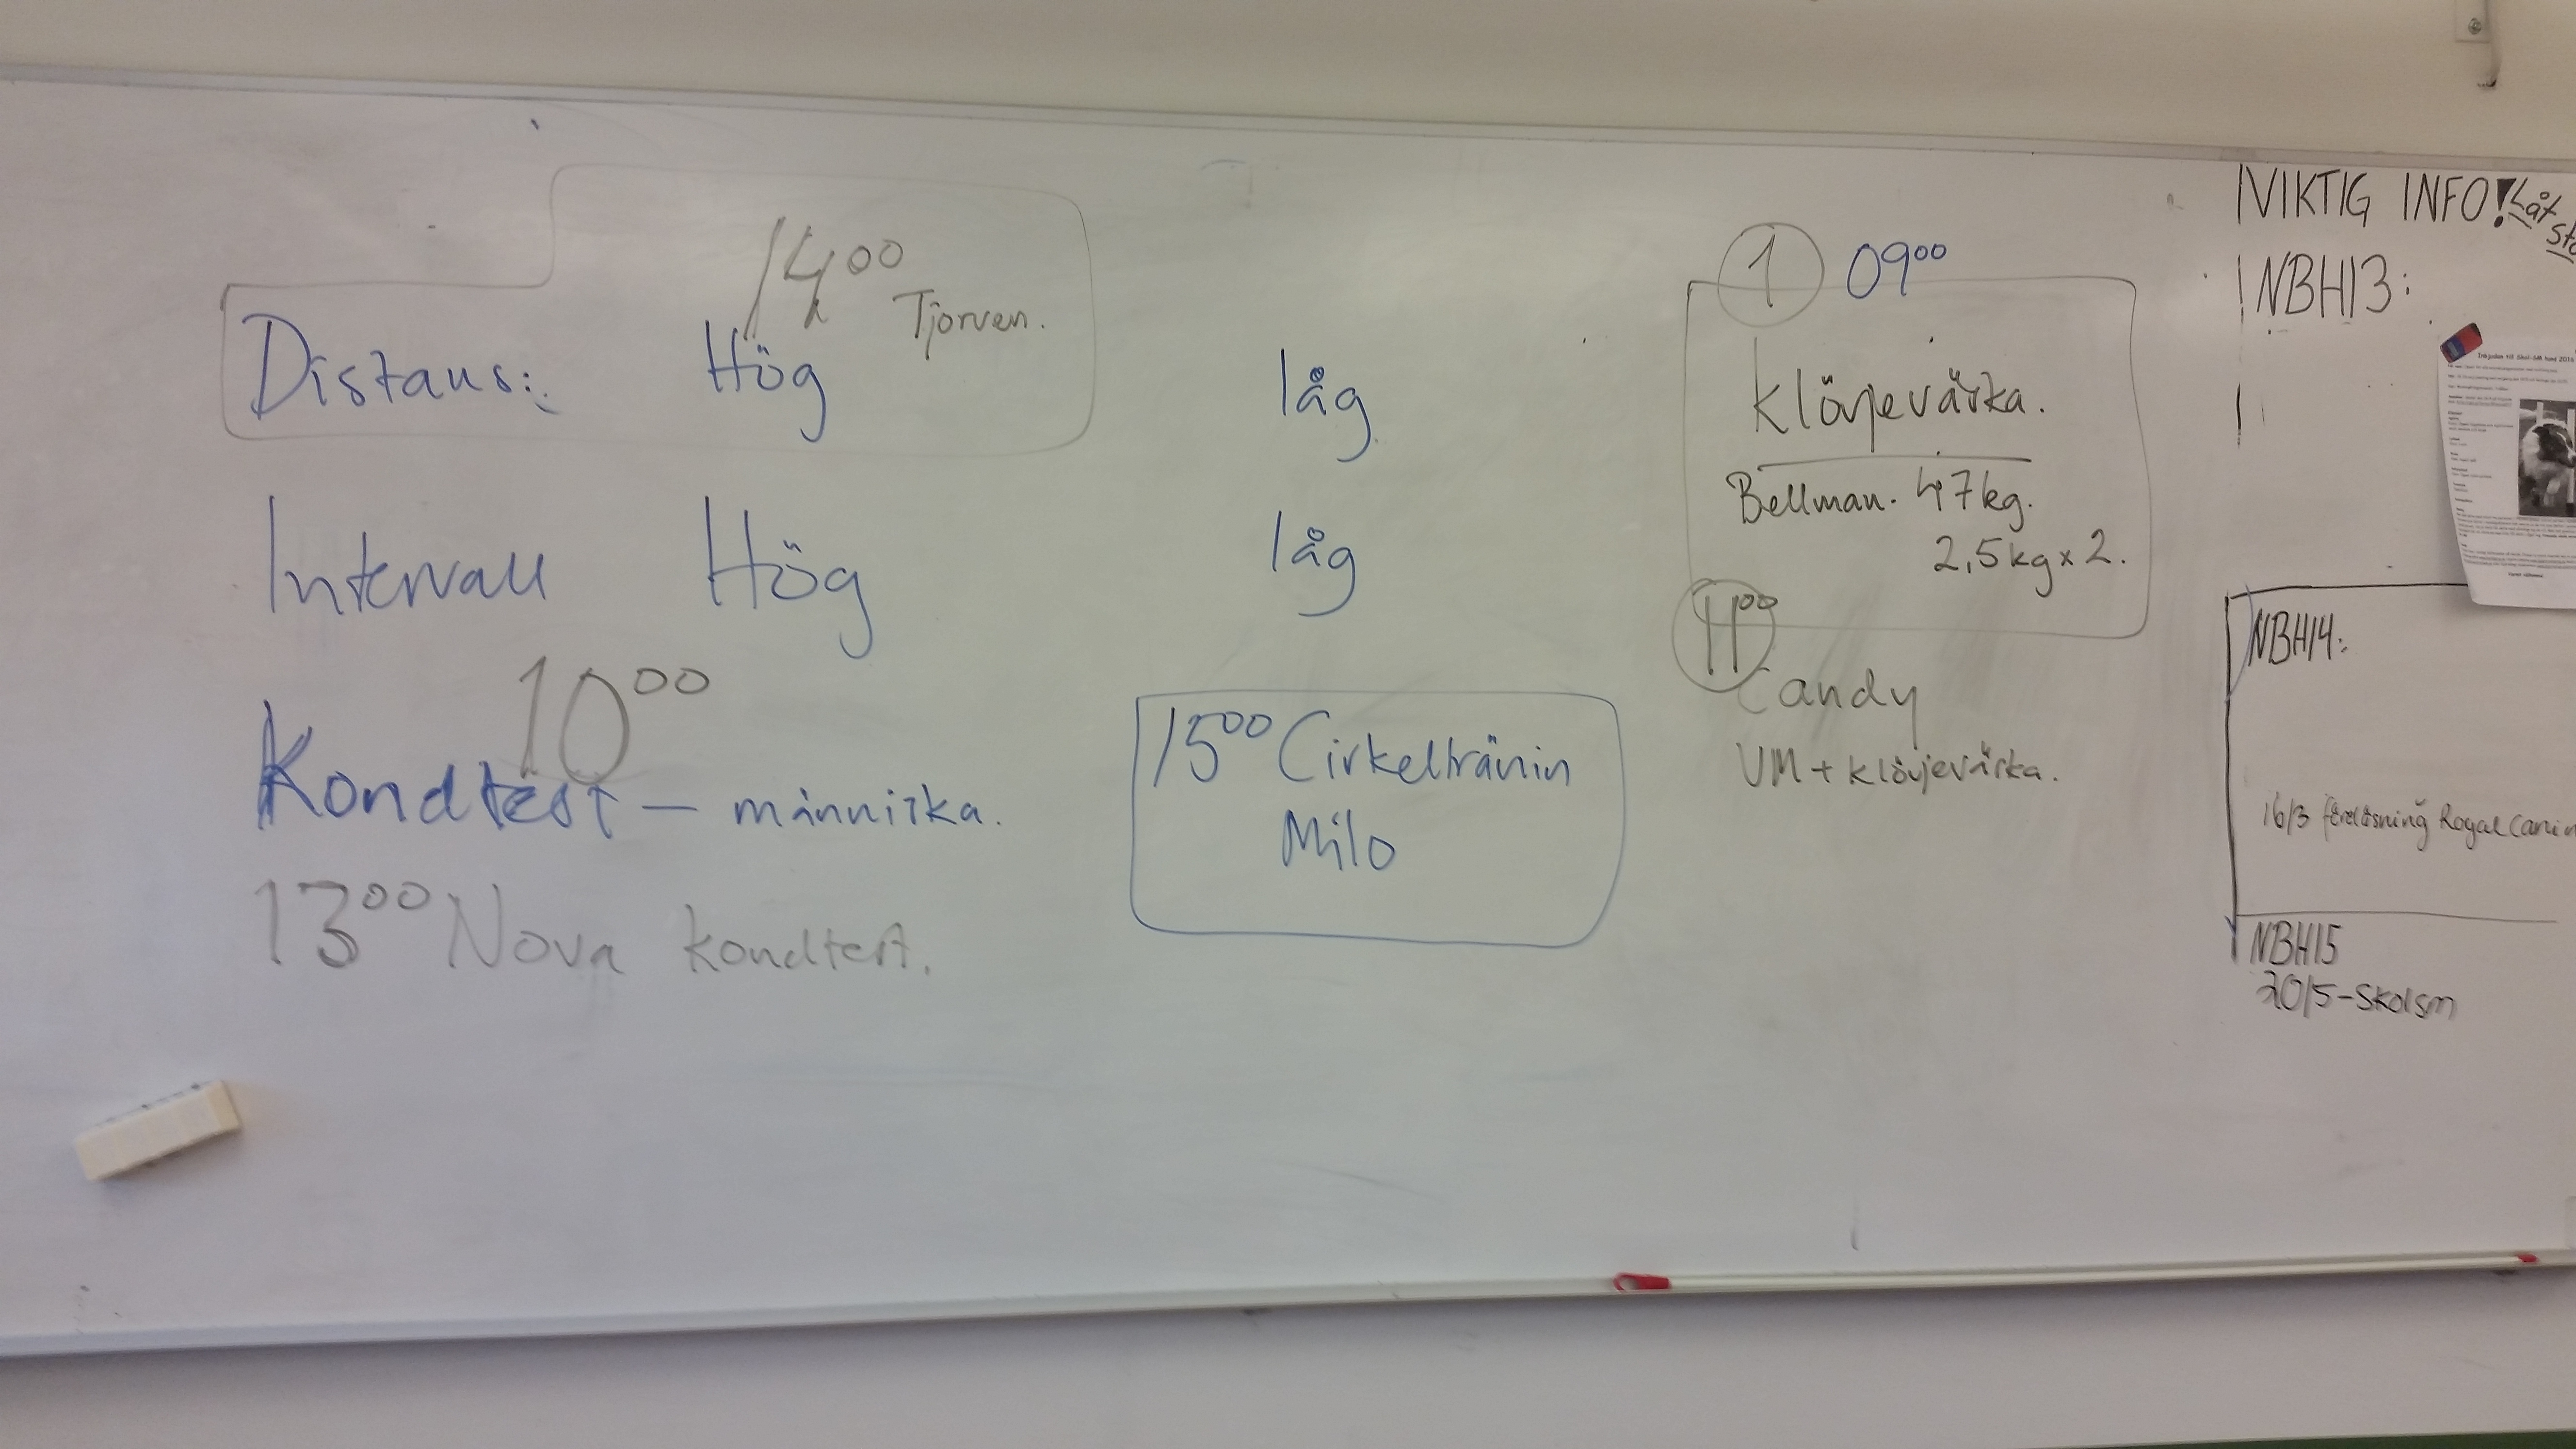 14⁰⁰
Tjorven.
Distans: Hög låg
Intervall Hög låg
10⁰⁰
Kondtest – människa.
13⁰⁰ Nova kondtest.
15⁰⁰ Cirkeltränin
Milo
1 09⁰⁰
Klövjeväska.
Bellman. 47kg.
2,5kg x 2.
11⁰⁰
Candy
VM + klövjeväska.
VIKTIG INFO! Låt
NBH13:
Inbjudan till Skol-SM hund 2016
NBH14:
16/3 föreläsning Royal Canin
NBH15
20/5-Skolsm